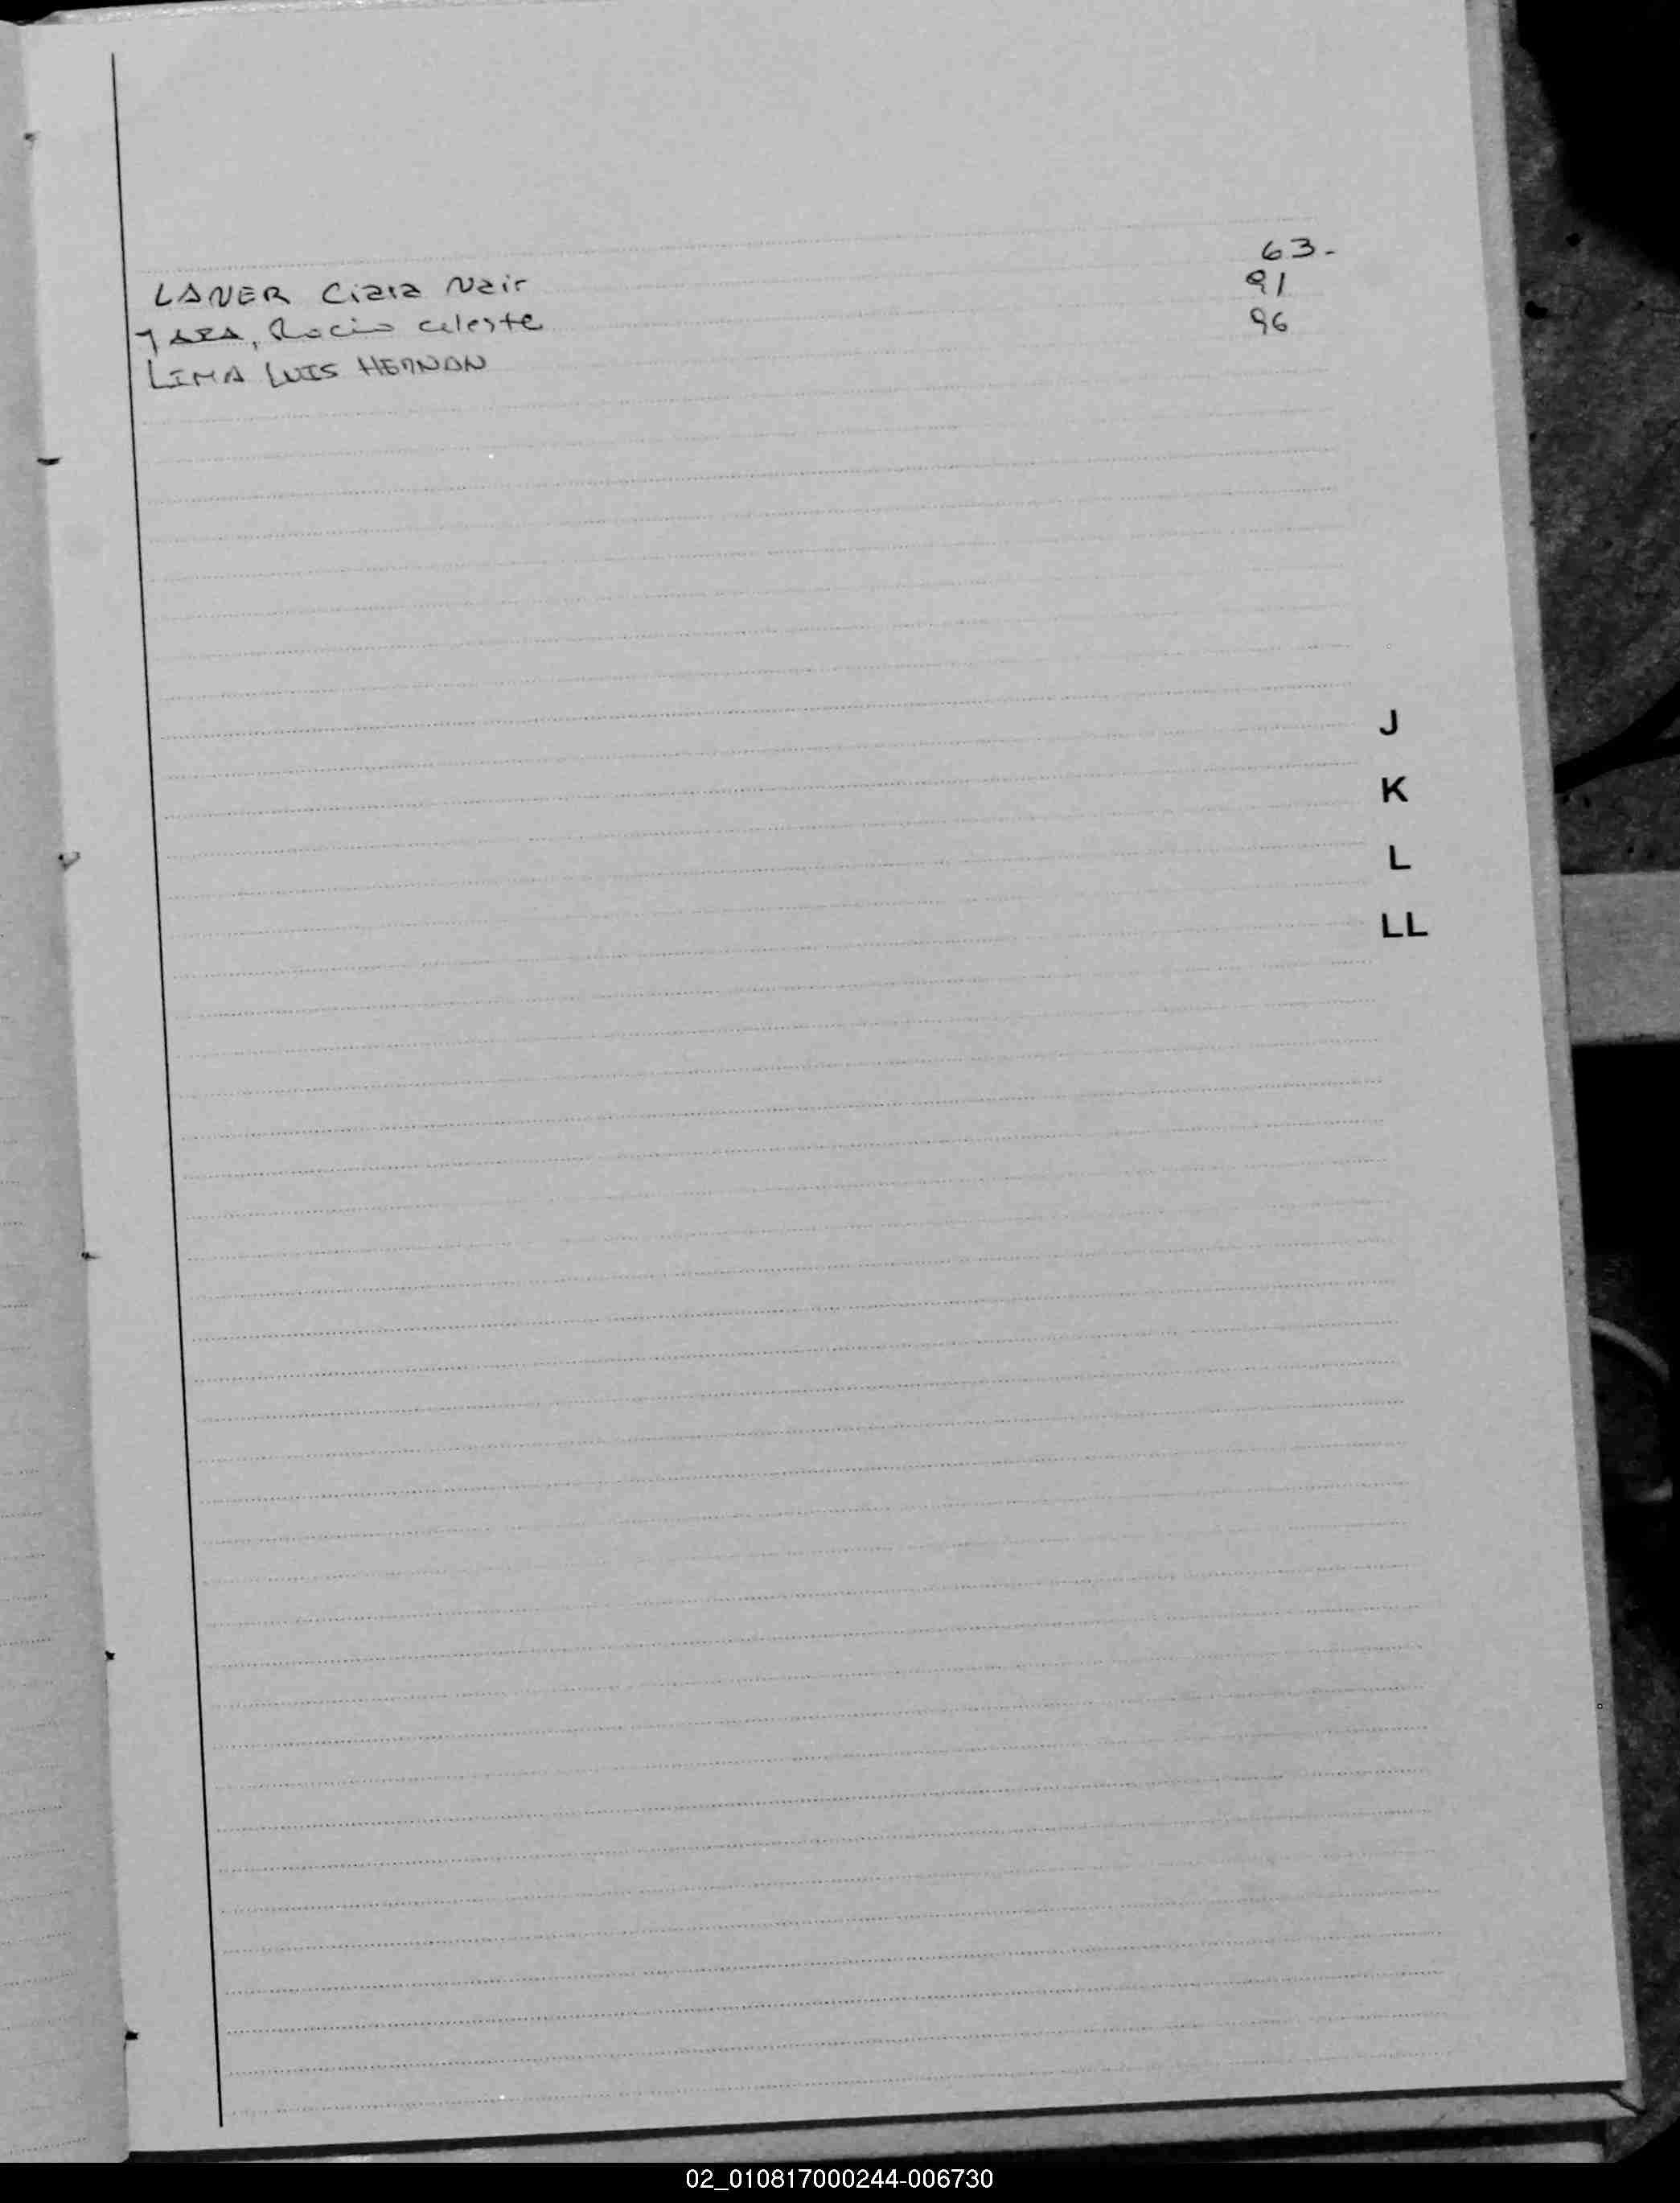 LANER Ciara Nair 63.-
JARA, Rocio Celeste 91
LIMA LUIS HERNAN 96
J
K
L
LL
02_010817000244-006730